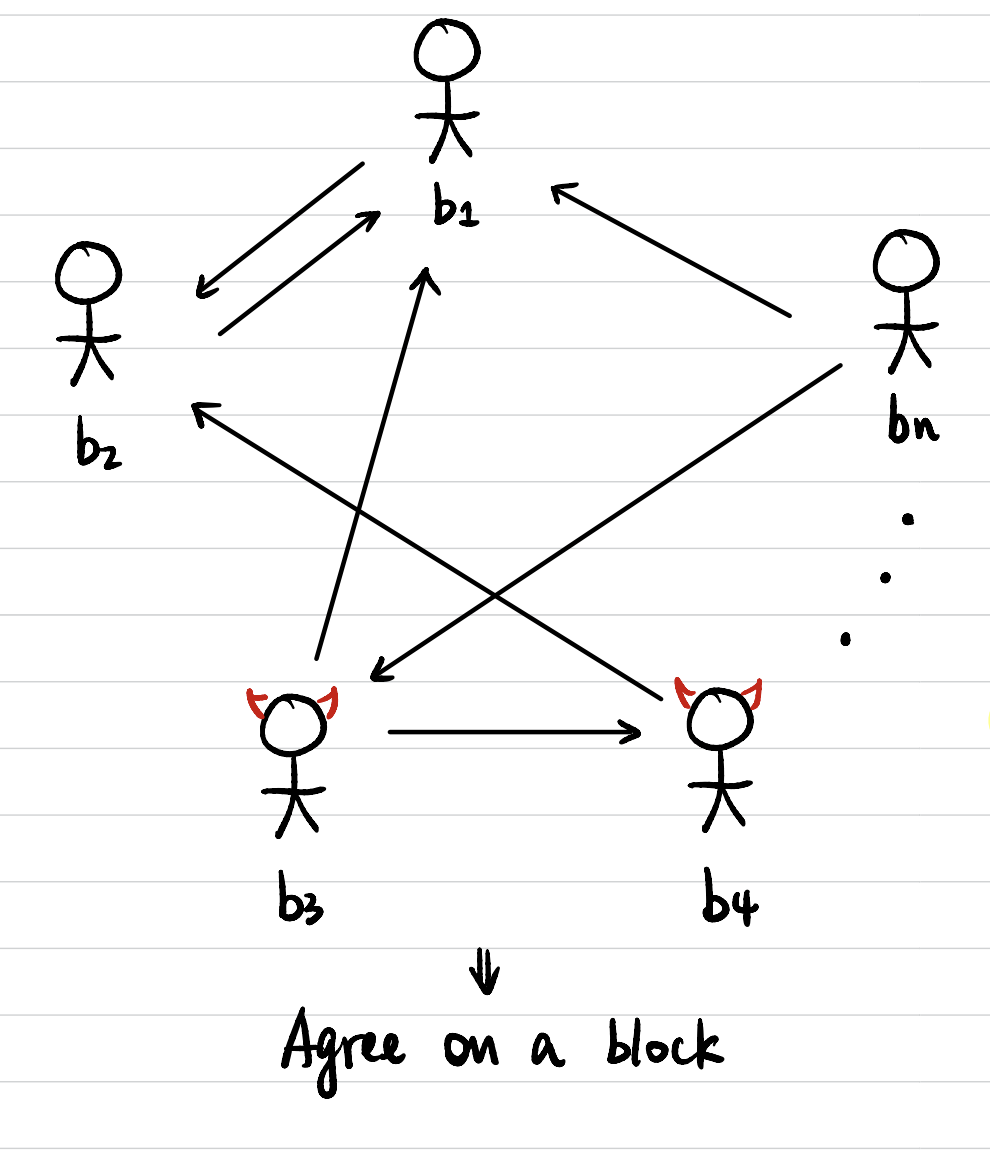 b1
b2
bn
b3
b4
Agree on a block